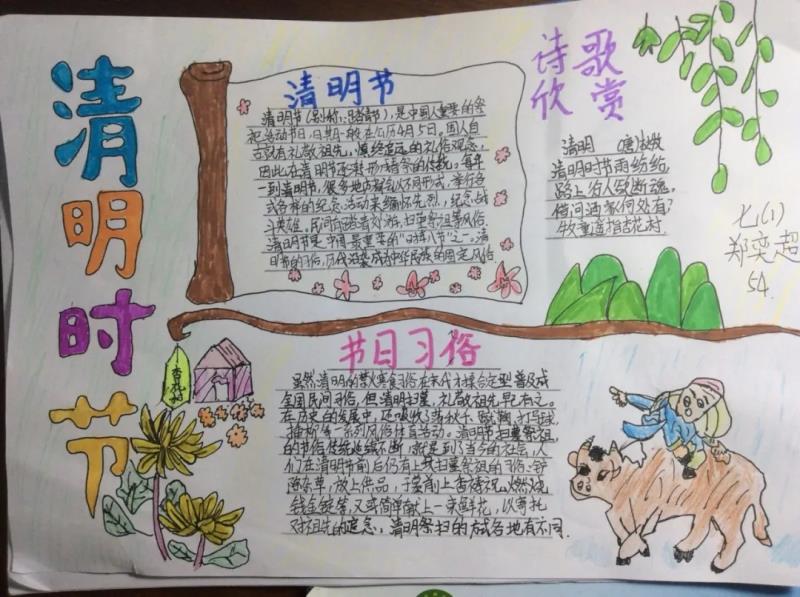 清明时节
清明节
清明节(别称:踏青节),是中国人重要的祭
祀活动节日,日期一般在公历4月5日。国人自
古就有礼敬祖先,慎终追远的礼俗观念,
因此在清明节还有扫墓祭祖的传统。每年
一到清明节,很多地方都会以不同形式,举行各
式各样的纪念活动来缅怀先烈,纪念战
斗英雄。民间
清明节是中国最重要的"
诗歌
欣赏
清明 (唐)杜牧
清明时节雨纷纷,
路上行人欲断魂。
借问酒家何处有?
牧童遥指杏花村.
七(1)
郑奕超
54.
节日习俗
虽然清明的禁火寒食习俗在
全国民间习俗,但清明扫墓、礼敬祖先早有之。
在历史的发展中,还吸收了荡秋千、蹴鞠、打马球、
插柳等一系列风俗体育活动。清明节扫墓祭祖
的节俗传统延续不断,就是到了当今的社会,人
们在清明节前后仍有上坟扫墓祭祖的习俗:铲
除杂草,放上供品,于坟前上香祷祝,燃烧
纸钱金锭等,又或简单献上一束鲜花,以寄托
对祖先的追念,清明祭扫的方式各地有不同.
杏花村